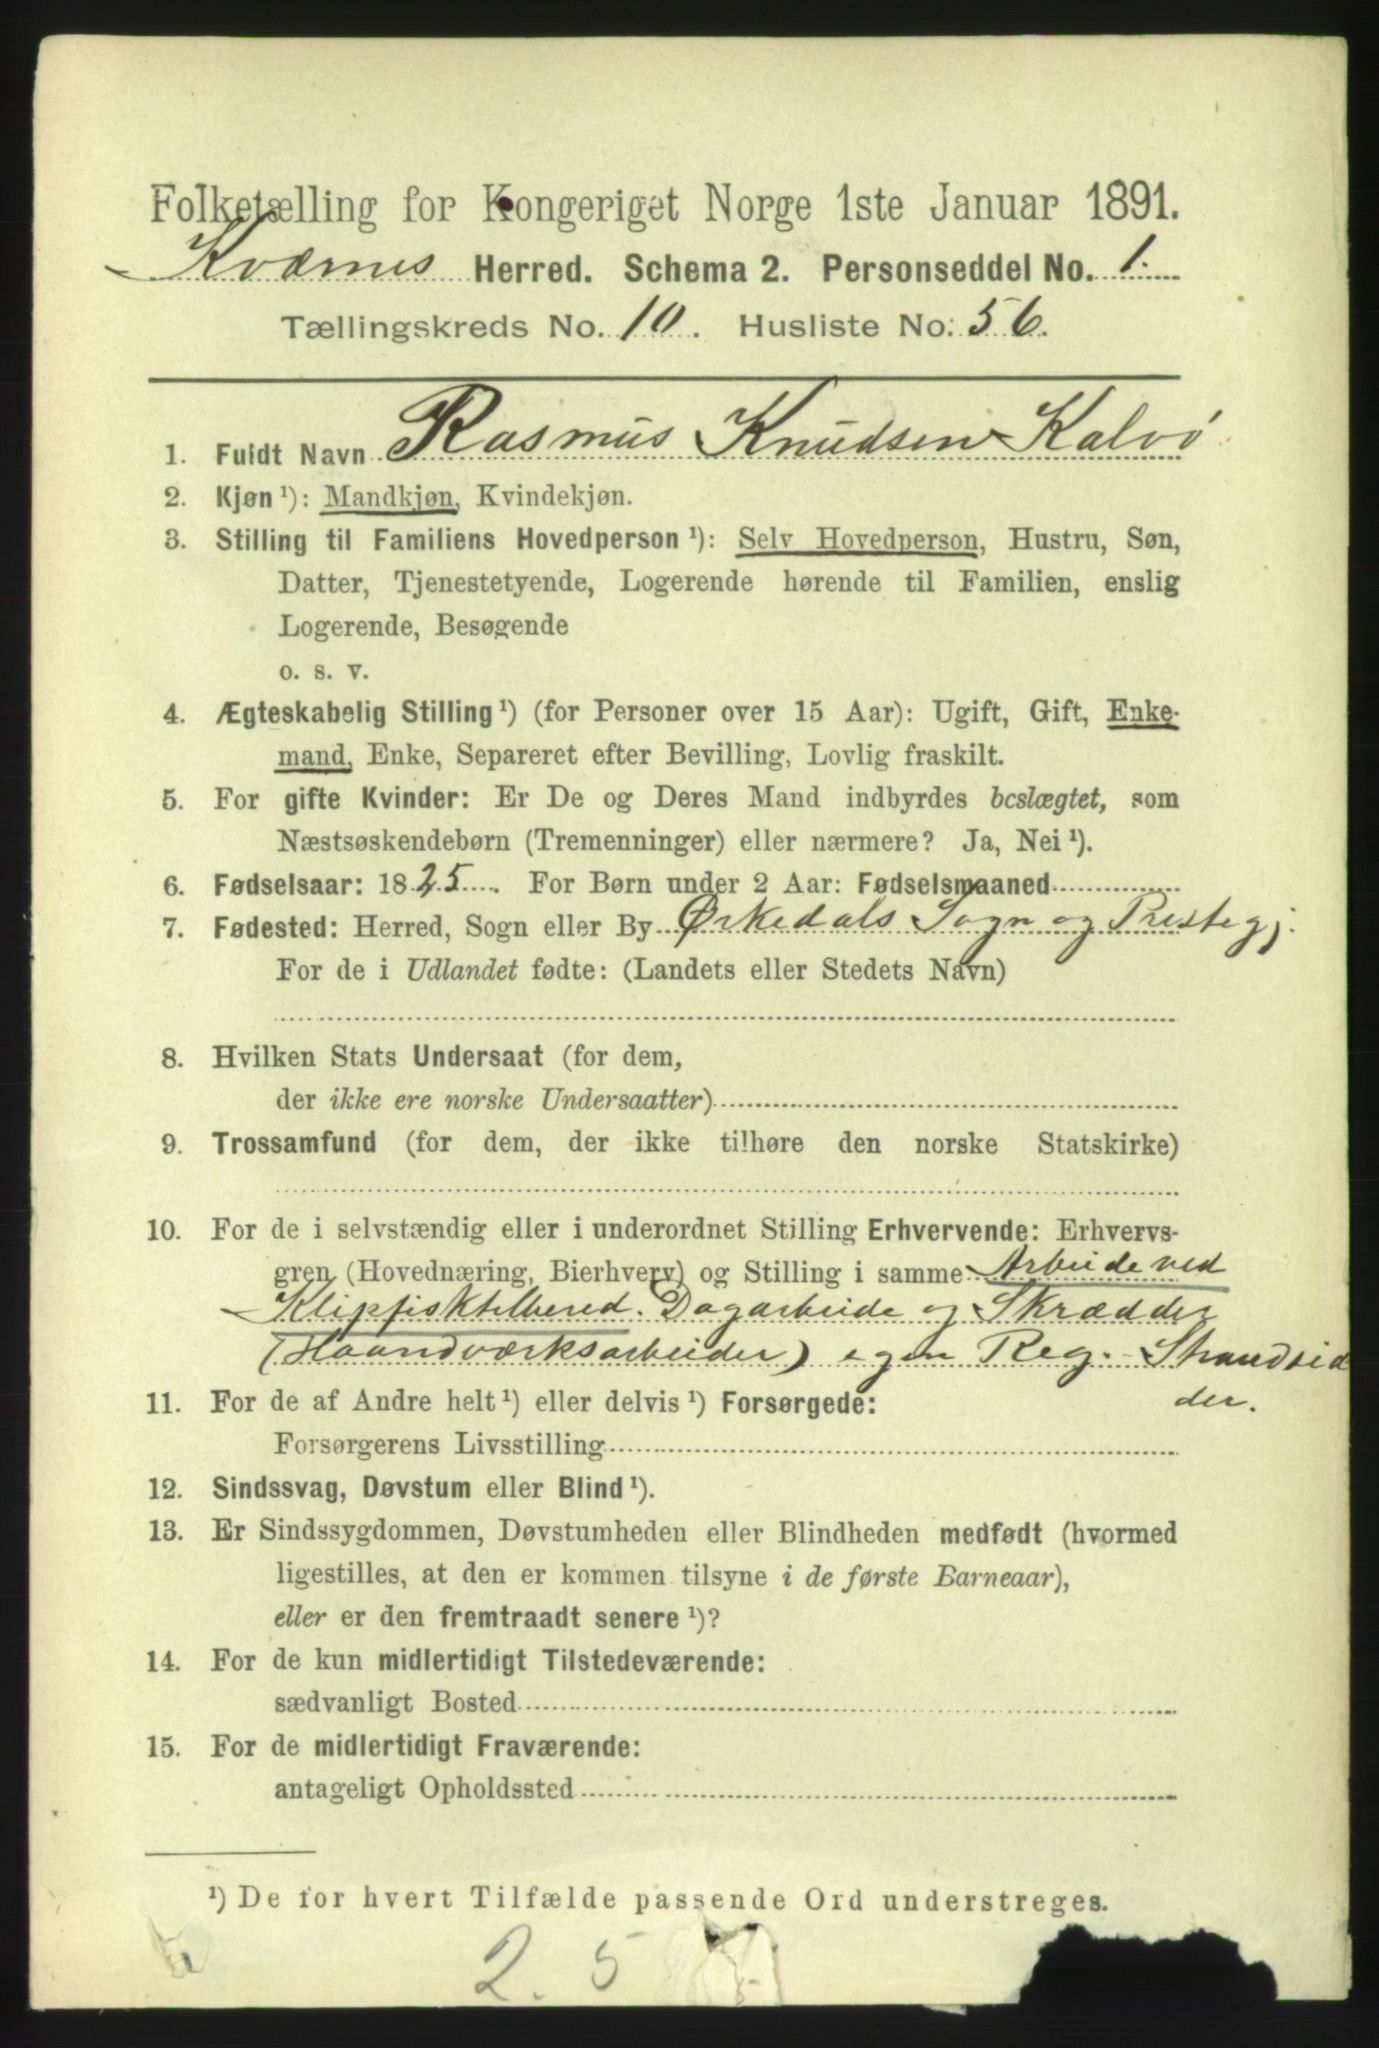 Folketælling for Kongeriget Norge 1ste Januar 1891.
Kværnes Herred. Schema 2. Personseddel No. 1.
Tællingskreds No. 10. Husliste No. 56.
1. Fuldt Navn Rasmus Knudsen Kalvø
2. Kjøn ¹): Mandkjøn, Kvindekjøn.
3. Stilling til Familiens Hovedperson ¹): Selv Hovedperson, Hustru, Søn,
Datter, Tjenestetyende, Logerende hørende til Familien, enslig
Logerende, Besøgende
o. s. v.
4. Ægteskabelig Stilling ¹) (for Personer over 15 Aar): Ugift, Gift, Enke-
mand, Enke, Separeret efter Bevilling, Lovlig fraskilt.
5. For gifte Kvinder: Er De og Deres Mand indbyrdes beslægtet, som
Næstsøskendebørn (Tremenninger) eller nærmere? Ja, Nei ¹).
6. Fødselsaar: 1825. For Børn under 2 Aar: Fødselsmaaned
7. Fødested: Herred, Sogn eller By Ørkedals Sogn og Presteg j.
For de i Udlandet fødte: (Landets eller Stedets Navn)
8. Hvilken Stats Undersaat (for dem,
der ikke ere norske Undersaatter)
9. Trossamfund (for dem, der ikke tilhøre den norske Statskirke)
10. For de i selvstændig eller i underordnet Stilling Erhvervende: Erhvervs-
gren (Hovednæring, Bierhverv) og Stilling i samme Arbeide ved
Klipfisktilbered. Dagarbeide og Skrædder
(Haandværksarbeider) egen Reg. Strandsid
der.
11. For de af Andre helt ¹) eller delvis ¹) Forsørgede:
Forsørgerens Livsstilling
12. Sindssvag, Døvstum eller Blind ¹).
13. Er Sindssygdommen, Døvstumheden eller Blindheden medfødt (hvormed
ligestilles, at den er kommen tilsyne i de første Barneaar),
eller er den fremtraadt senere ¹)?
14. For de kun midlertidigt Tilstedeværende:
sædvanligt Bosted
15. For de midlertidigt Fraværende:
antageligt Opholdssted
¹) De for hvert Tilfælde passende Ord understreges.
2. 5